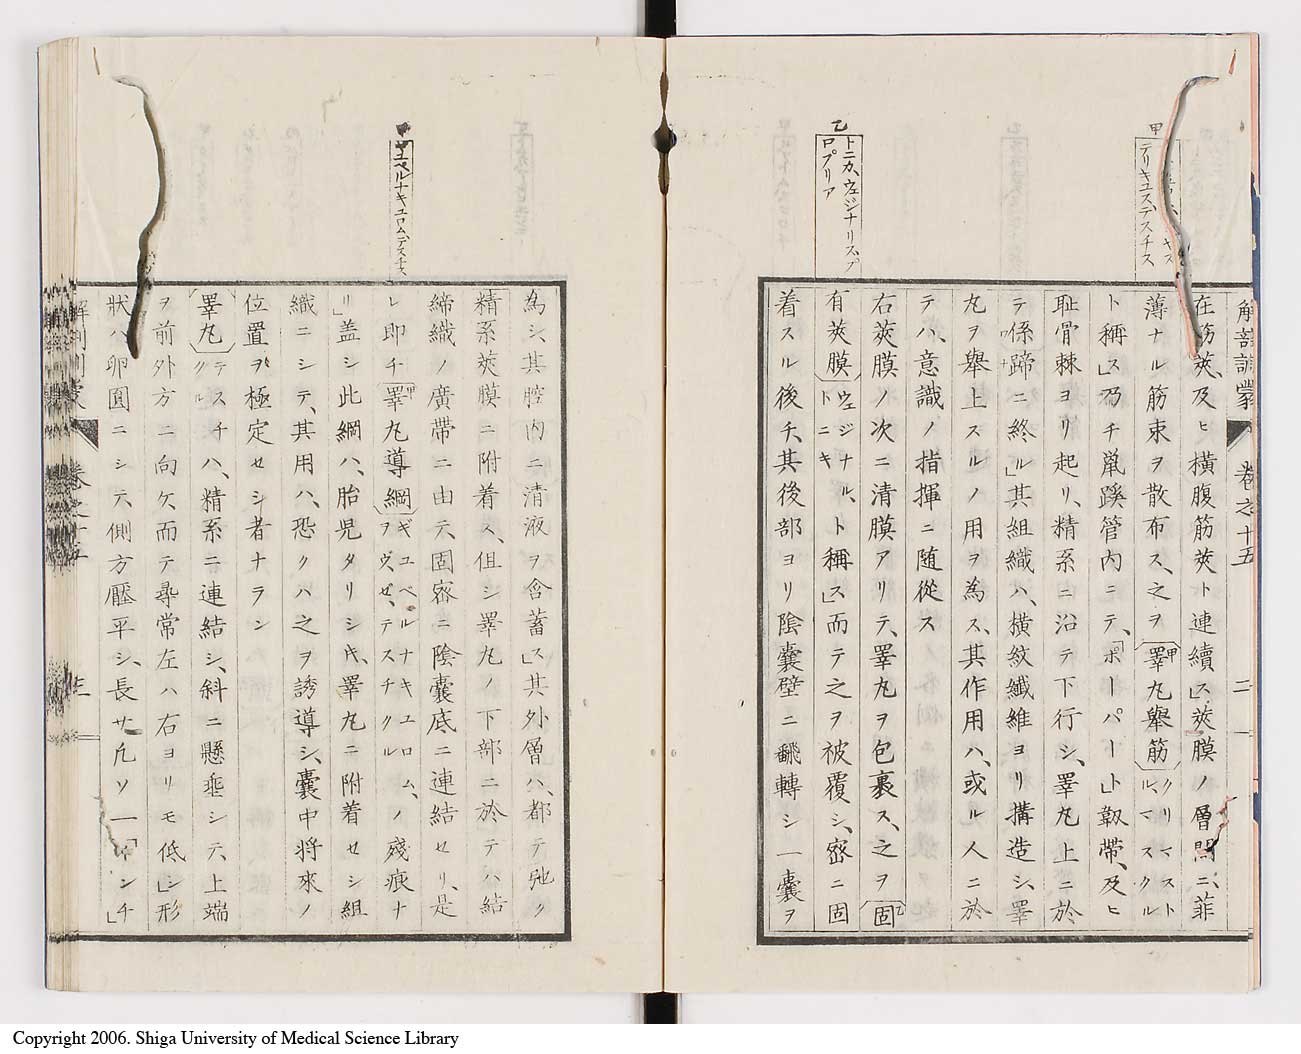 解剖訓蒙 卷之十五 二一
甲
テリキュスデスチス
在筋莢及ヒ橫腹筋莢ト連續ス」莢膜ノ層間ニ、菲
薄ナル筋束ヲ散布ス、之ヲ睪丸擧筋クリマストルマスクル
ト稱ス」乃チ鼠蹊管內ニテ、「ポーパート」韌帶、及ヒ
耻骨棘ヨリ起リ、精系ニ沿テ下行シ、睪丸上ニ於
テ係蹄ニ終ル」其組織ハ、橫紋纖維ヨリ搆造シ、睪
丸ヲ擧上スルノ用ヲ為ス、其作用ハ、或ル人ニ於
テハ、意識ノ指揮ニ随從ス
乙
トニカ、ウェジナリス、プ
ロプリア
右莢膜ノ次ニ清膜アリテ、睪丸ヲ包裹ス、之ヲ固
有莢膜ウェジナル、トニキト稱ス」而テ之ヲ被覆シ、密ニ固
着スル後チ、其後部ヨリ陰囊壁ニ飜轉シ一囊ヲ
為シ、其腔內ニ清液ヲ含蓄ス」其外層ハ、都テ弛ク
精系莢膜ニ附着ス、但シ睪丸ノ下部ニ於テハ結
締織ノ廣帶ニ由テ、固密ニ陰囊底ニ連結セリ、是
甲
ギュベルナキュロムデスチス
レ即チ睪丸導綱ギュベルナキユロム、ヲヴゼ、テスチクルノ殘痕ナ
リ」盖シ此綱ハ、胎兒タリシ片、睪丸ニ附着セシ組
織ニシテ、其用ハ、恐クハ之ヲ誘導シ、囊中將來ノ
位置ヲ極定セシ者ナラン
睪丸テスチクルハ、精系ニ連結シ、斜ニ懸垂シテ、上端
ヲ前外方ニ向ケ、而テ尋常左ハ右ヨリモ低シ」形
狀ハ卵圓ニシテ、側方壓平シ、長サ凡ソ一「インチ」
解剖訓蒙 卷之十五
Copyright 2006. Shiga University of Medical Science Library